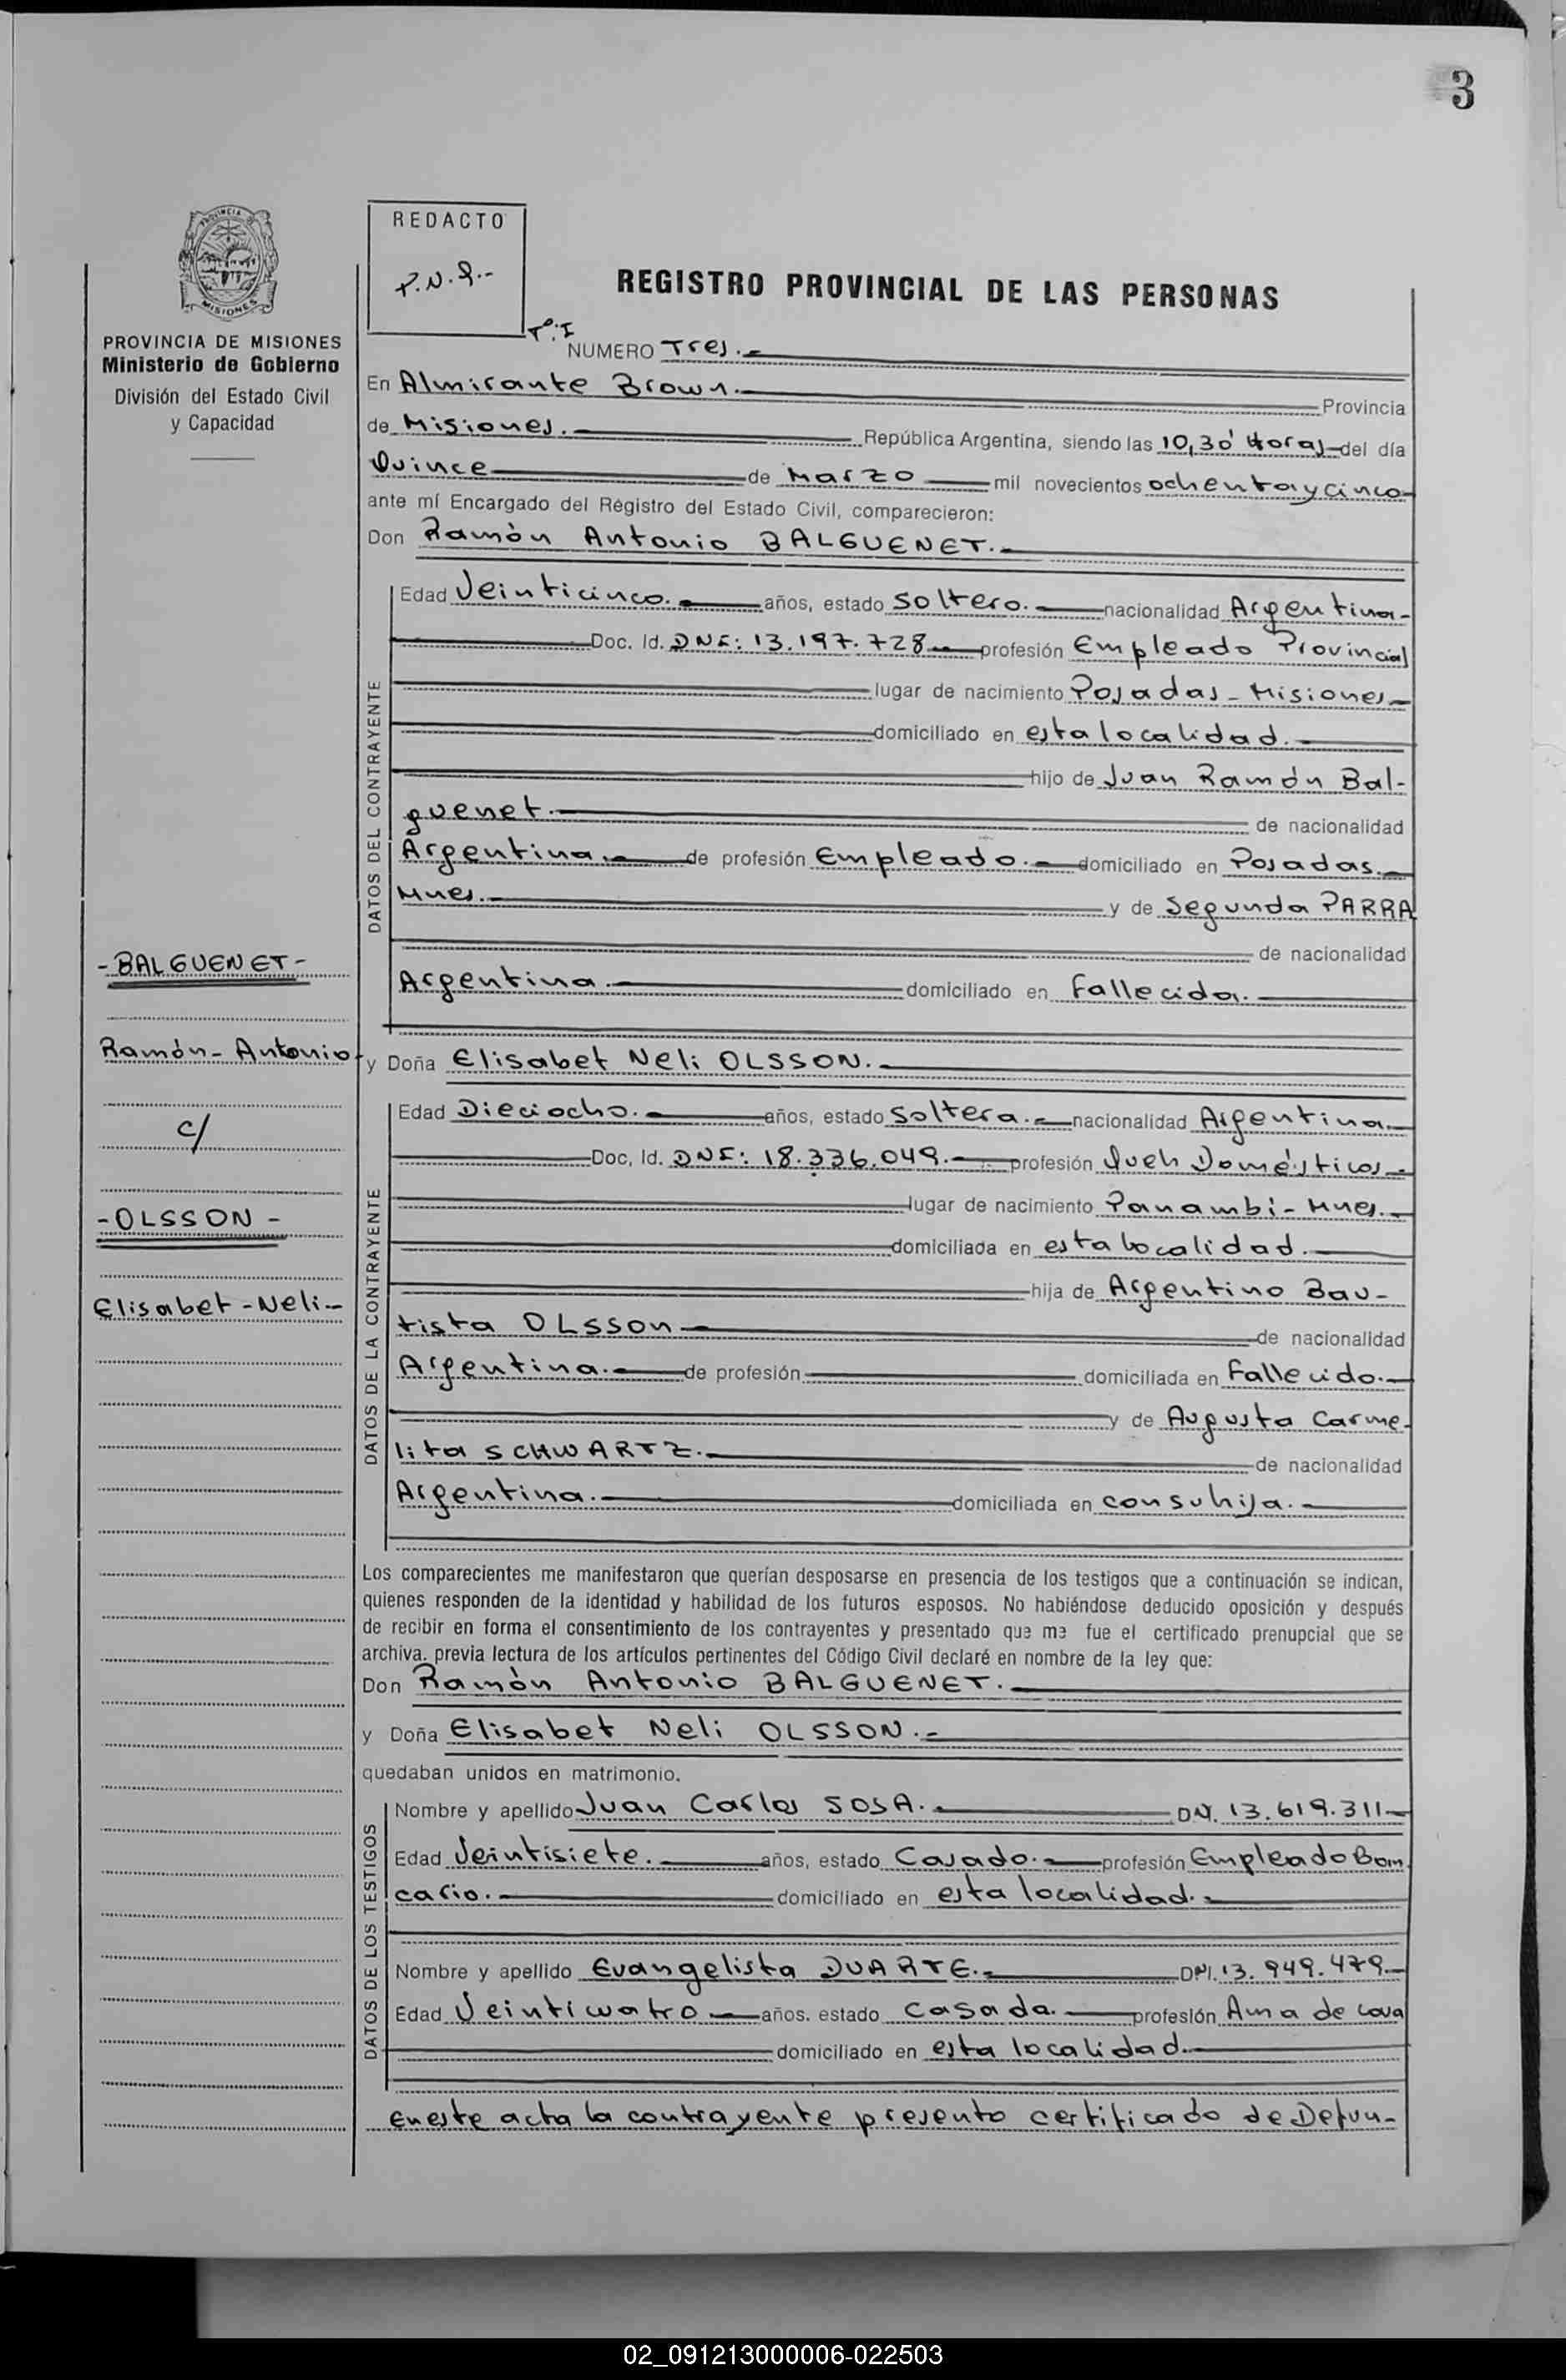 3
PROVINCIA
MISIONES
PROVINCIA DE MISIONES
Ministerio de Gobierno
División del Estado Civil
y Capacidad
REDACTO
REGISTRO PROVINCIAL DE LAS PERSONAS
Tº:I
NUMERO Tres.-
En Almirante Brown. Provincia
de Misiones. República Argentina, siendo las 10,30' Horas del día
Quince de Marzo mil novecientos ochentaycinco
ante mí Encargado del Registro del Estado Civil, comparecieron:
Don Ramòn Antonio BALGUENET.-
DATOS DEL CONTRAYENTE
Edad Veinticinco. años, estado Soltero. nacionalidad Argentina-
Doc. Id. DNI: 13.197.728 profesión Empleado Provincial
lugar de nacimiento Posadas-Misiones-
domiciliado en esta localidad.
hijo de Juan Ramón Bal-
guenet. de nacionalidad
Argentina. de profesión Empleado. domiciliado en Posadas.
Mnes. y de Segunda PARRA
de nacionalidad
Argentina. domiciliado en Fallecida.
y Doña Elisabet Neli OLSSON.-
DATOS DE LA CONTRAYENTE
Edad Dieciocho. años, estado Soltera. nacionalidad Argentina
Doc, Id. DNI: 18.336.049. profesión Queh Domésticos
lugar de nacimiento Panambi-Mnes.
domiciliada en esta localidad.
hija de Argentino Bau-
tista OLSSON de nacionalidad
Argentina. de profesión domiciliada en Fallecido.
y de Augusta Carme-
lita SCHWARTZ. de nacionalidad
Argentina. domiciliada en consuhija.
Los comparecientes me manifestaron que querían desposarse en presencia de los testigos que a continuación se indican,
quienes responden de la identidad y habilidad de los futuros esposos. No habiéndose deducido oposición y después
de recibir en forma el consentimiento de los contrayentes y presentado que me fue el certificado prenupcial que se
archiva, previa lectura de los artículos pertinentes del Código Civil declaré en nombre de la ley que:
Don Ramòn Antonio BALGUENET.
y Doña Elisabet Neli OLSSON.-
quedaban unidos en matrimonio.
DATOS DE LOS TESTIGOS
Nombre y apellido Juan Carlos SOSA. DNI. 13.619.311
Edad Veintisiete. años, estado Casado. profesión Empleado Ban
cario. domiciliado en esta localidad.
Nombre y apellido Evangelista DUARTE. DNI. 13.949.479
Edad Veinticuatro años. estado Casada. profesión Ama de casa
domiciliado en esta localidad.
Eneste acta la contrayente presento certificado de Defun-
-BALGUENET-
Ramón-Antonio
c/
-OLSSON-
Elisabet-Neli-
02_091213000006-022503